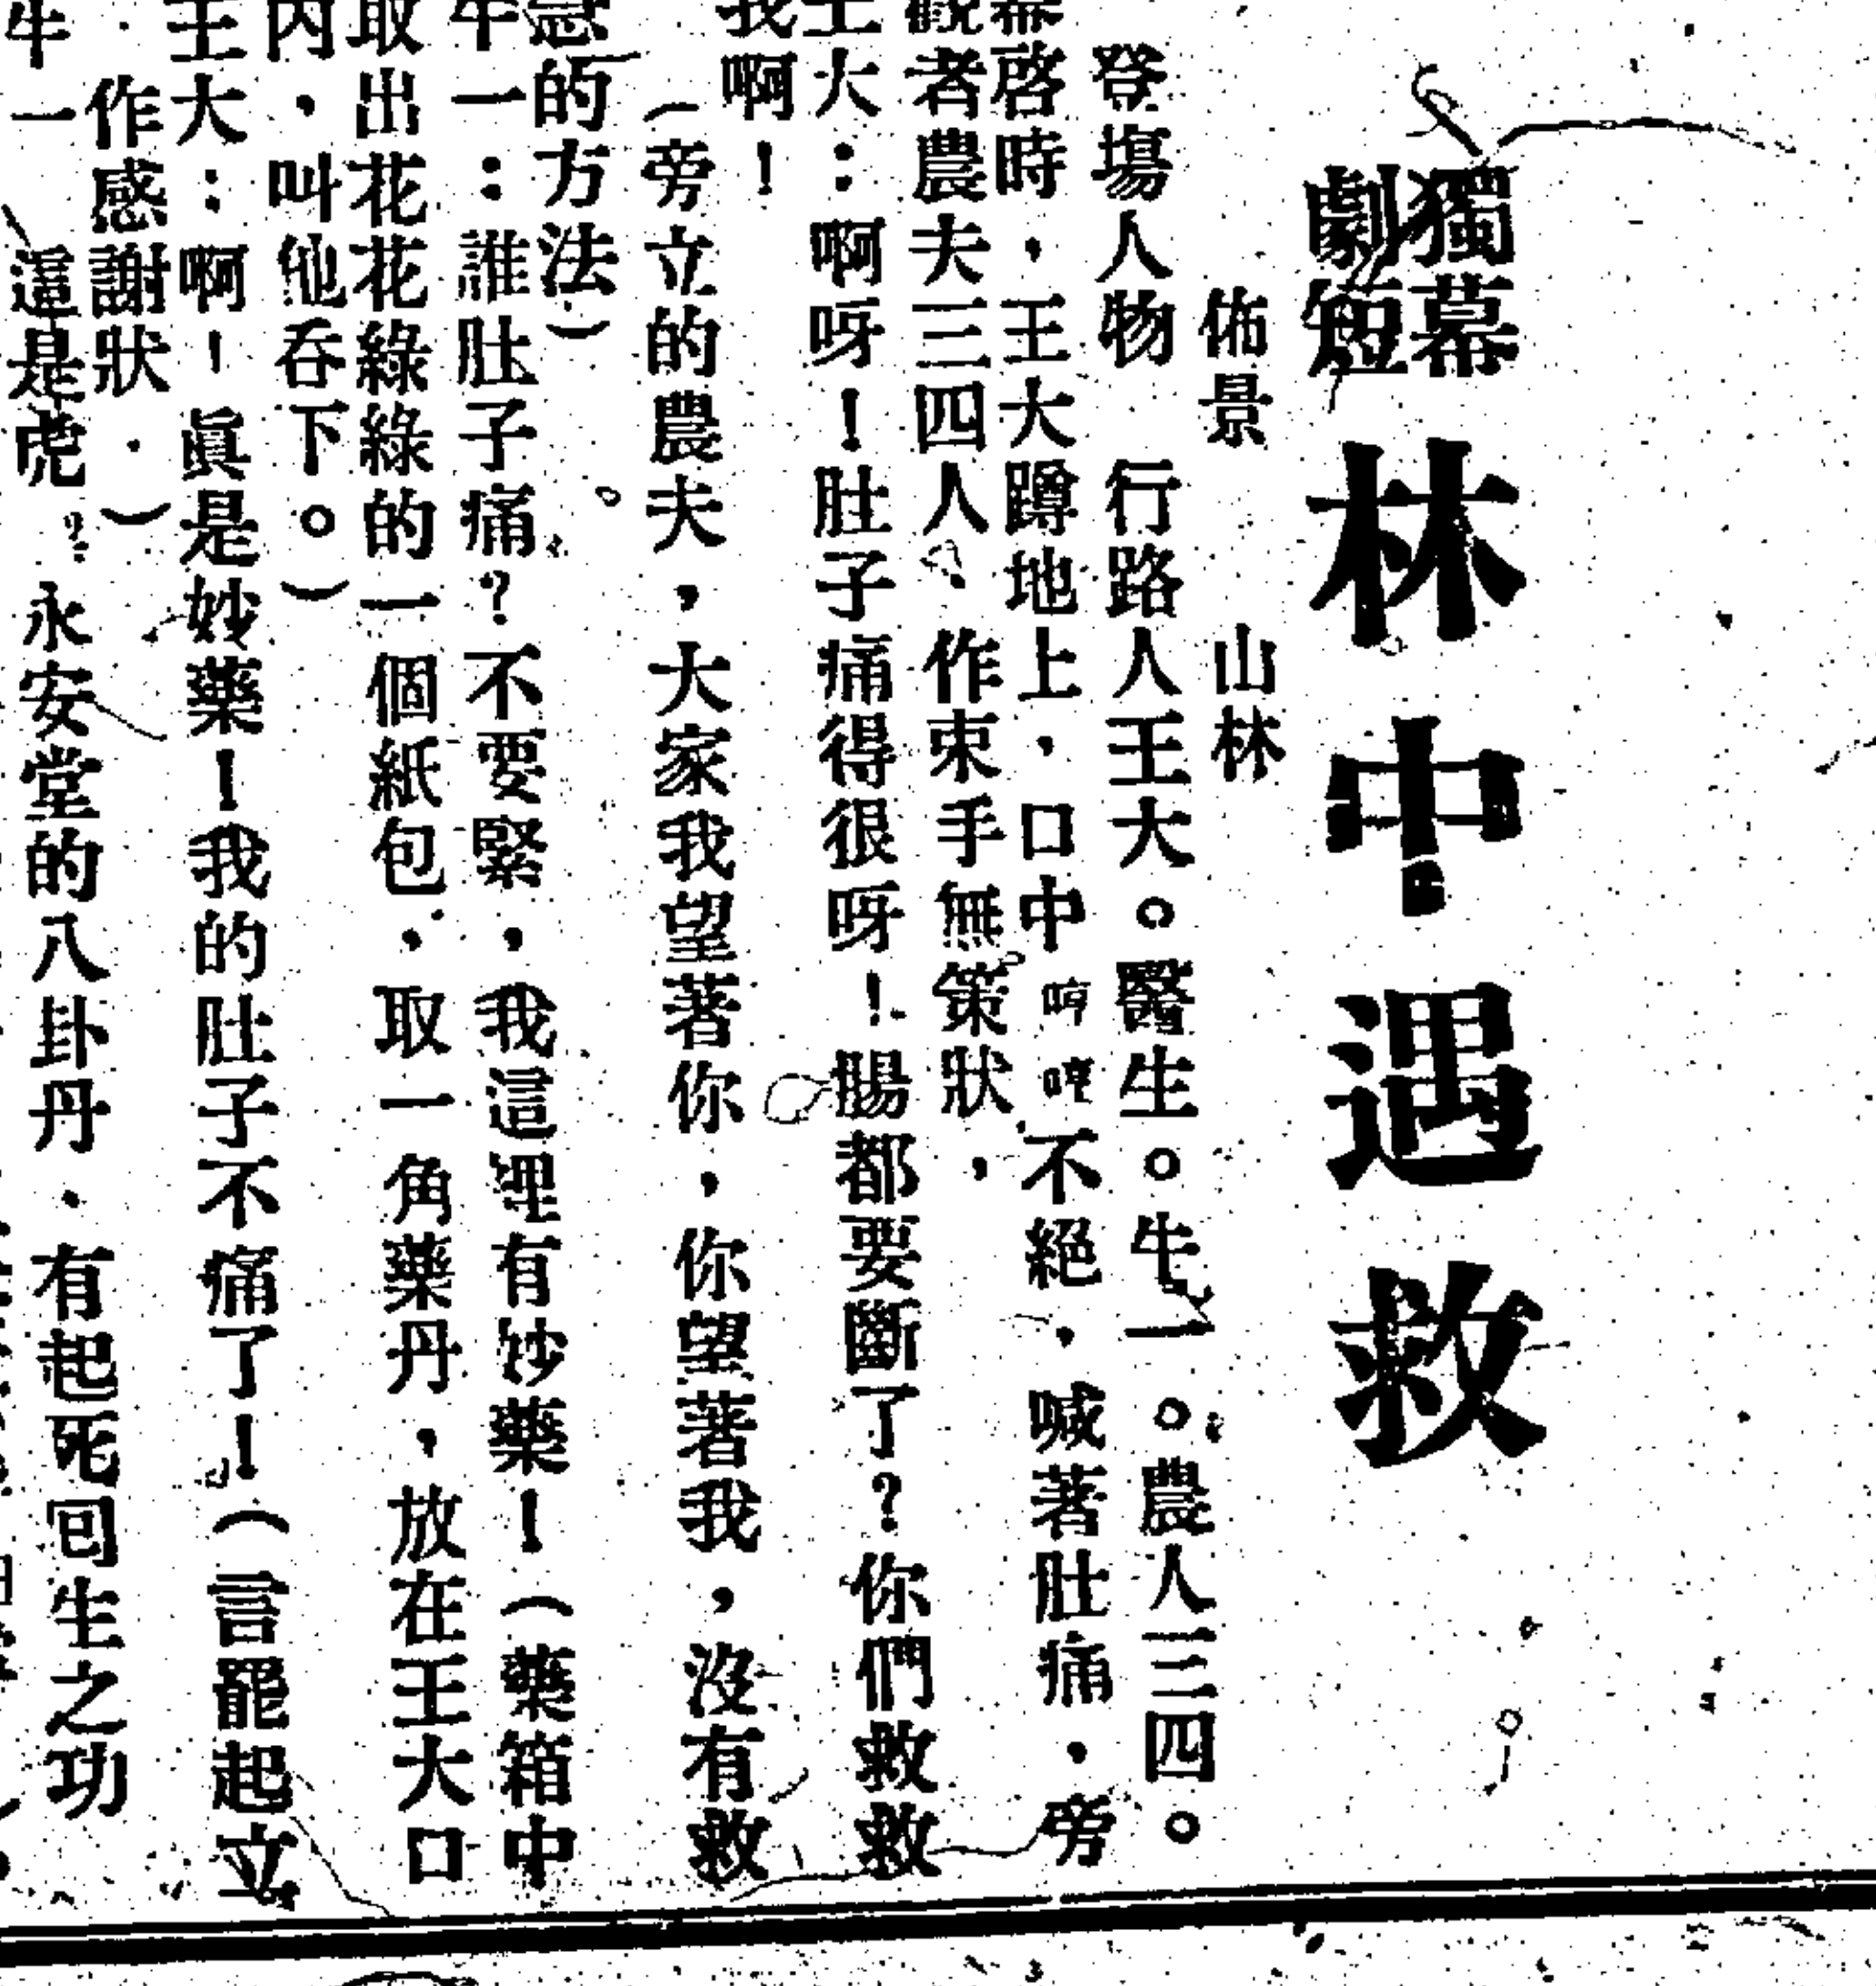 獨幕
短劇
林中遇救
佈景　山林
登場人物　行路人王大。醫生。牛一。農人三四。
幕啓時，王大蹲地上，口中哼哼不絕，喊著肚痛，旁
觀者農夫三四人，作束手無策狀，
王大：啊呀！肚子痛得很呀！腸都要斷了？你們救救
我啊！
（旁立的農夫，大家我望著你，你望著我，沒有救
急的方法）。
牛一：誰肚子痛？不要緊，我這裡有妙藥！（藥箱中
取出花花綠綠的一個紙包，取一角藥丹，放在王大口
內，叫他吞下。）
王大：啊！眞是妙藥！我的肚子不痛了！（言罷起立
作感謝狀．）
牛一　這是虎　永安堂的八卦丹，有起死回生之功